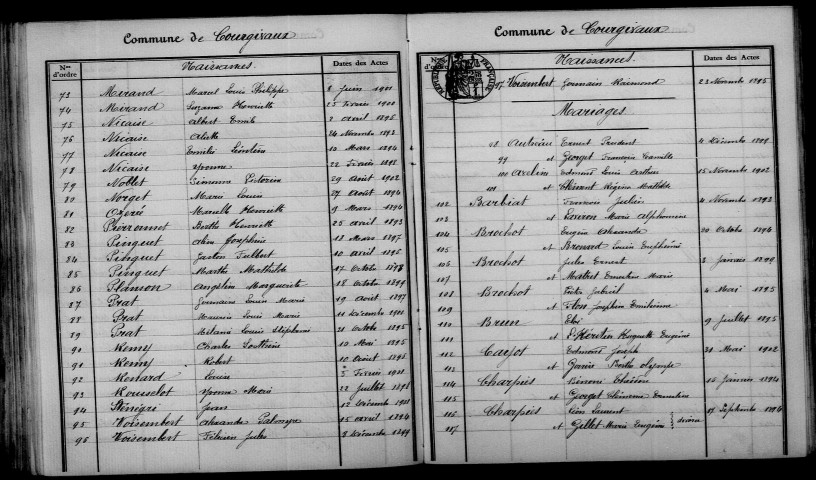 Commune de Courgivaux
Nos d'ordre Naissances. Dates des Actes
73 Mirand Marcel Louis Philippe 8 Juin 1901
74 Mirand Suzanne Henriette 25 Février 1900
75 Nicaise Albert Emile 2 Avril 1895
76 Nicaise 24 Novembre 1893
77 Nicaise Emile 10 Mars 1894
78 Nicaise Yvonne 22 Février 1898
79 Noblet 29 Août 1902
80 Norget Marie Louise 27 Août 1894
81 Marcelle Henriette 9 Mars 1894
82 Pierronnet Berthe Henriette 25 Avril 1893
83 Pinguet Aline Joséphine 18 Mars 1897
84 Pinguet Gaston 10 Avril 1895
85 Pinguet Marthe Mathilde 17 Octobre 1898
86 Plamon Angéline Marguerite 18 Octobre 1899
87 Prat Germaine Louise Marie 19 Août 1897
88 Prat Maurice Louis Marie 11 Décembre 1900
89 Prat Mélanie Louise Stéphanie 21 Octobre 1895
90 Remy Charles 10 Mai 1895
91 Remy Robert 10 Août 1895
92 Renard Louise 5 Février 1901
93 Rousselot Yvonne Marie 22 Juillet 1898
94 Jean 12 Décembre 1901
95 Voisembert Alexandre 15 Avril 1894
96 Voisembert Félicien Jules 3 Décembre 1899
Commune de Courgivaux
Nos d'ordre Naissances. Dates des Actes
97 Voisembert Germain Raimond 23 Novembre 1895
Mariages
98 Ernest Prudent 4 Décembre 1899
99 et Georget Françoise Camille
100 Axelin Edmond Louis Arthur 15 Novembre 1902
101 et Régina Mathilde
102 Barbiat François Julien 4 Novembre 1893
103 et Marie Alphonsine
104 Brochot Eugène Alexandre 20 Octobre 1896
105 et Brouard Louise
106 Brochot Jules Ernest 3 Janvier 1899
107 et Ernestine Marie
108 Brochot Gabriel 4 Mai 1895
109 et Joséphine
110 Brun Eloi 9 Juillet 1895
111 et Huguette Eugénie
112 Carpot Edmond Joseph 31 Mai 1902
113 et Berthe Olympe
114 Charpies 16 Janvier 1894
115 et Georget Ernestine
116 Charpies Léon Laurent 17 Septembre 1896
117 et Gillet Marie Eugénie divorce